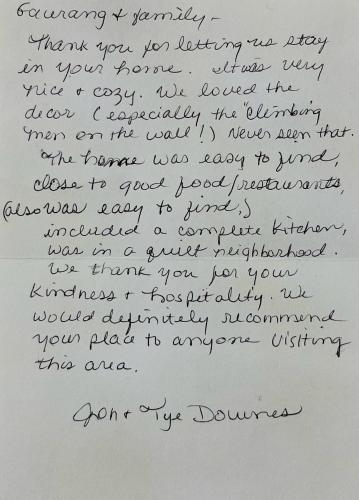 Gaurang & family -
Thank you for letting us stay
in your home. It was very
nice & cozy. We loved the
decor (especially the "climbing
men on the wall"!) Never seen that.
The home was easy to find,
close to good food/restaurants,
(also was easy to find,)
included a complete kitchen,
was in a quiet neighborhood.
We thank you for your
kindness & hospitality. We
would definitely recommend
your place to anyone visiting
this area.
Jon & Tye Downes